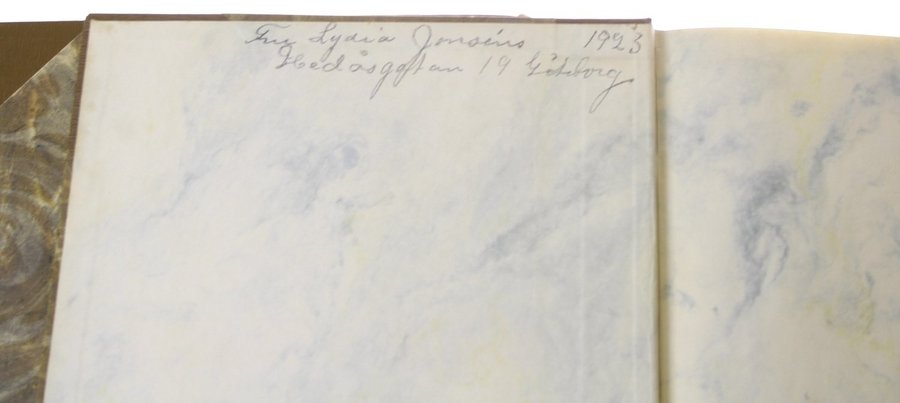 Fru Lydia Jonséns 1923
Hedåsgatan 19 Göteborg